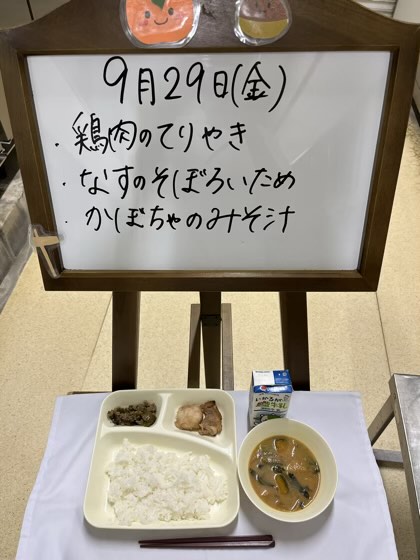 9月29日(金)
・鶏肉のてりやき
・なすのそぼろいため
・かぼちゃのみそ汁
いかるが
牛乳